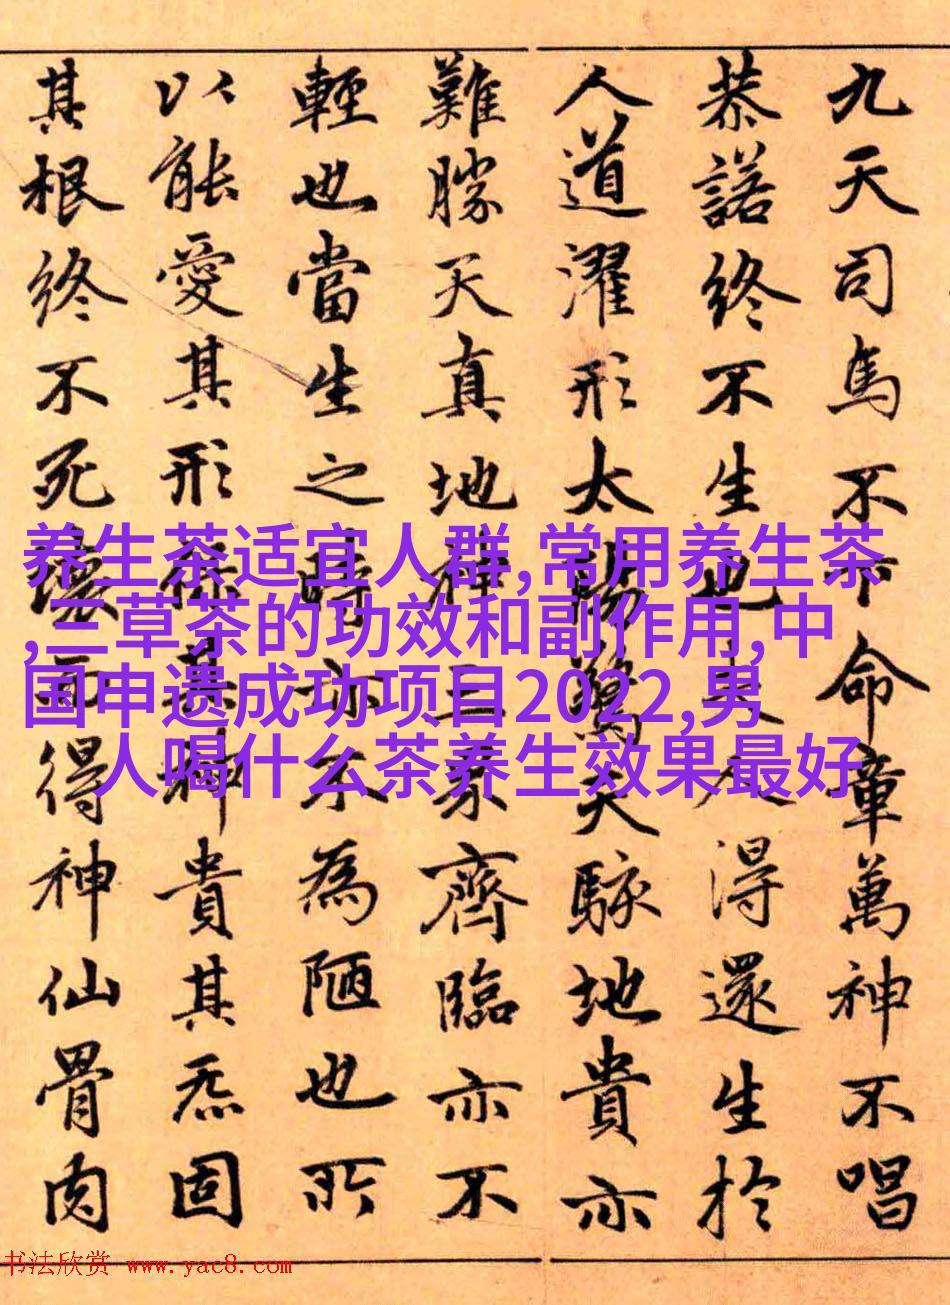 九天司馬不下命章萬神不唱
恭諾終不生也夫人得還生於
人道濯形太陽驚天駭地貴亦
難勝天真地神三界齊臨亦不
輕也當生之時亦不為陋也所
以能愛其形保其神貴其炁固
其根終不死壞而得神仙骨肉
养生茶适宜人群,常用养生茶
,三草茶的功效和副作用,中
国申遗成功项目2022,男
人喝什么茶养生效果最好
书法欣赏 www.yac8.com